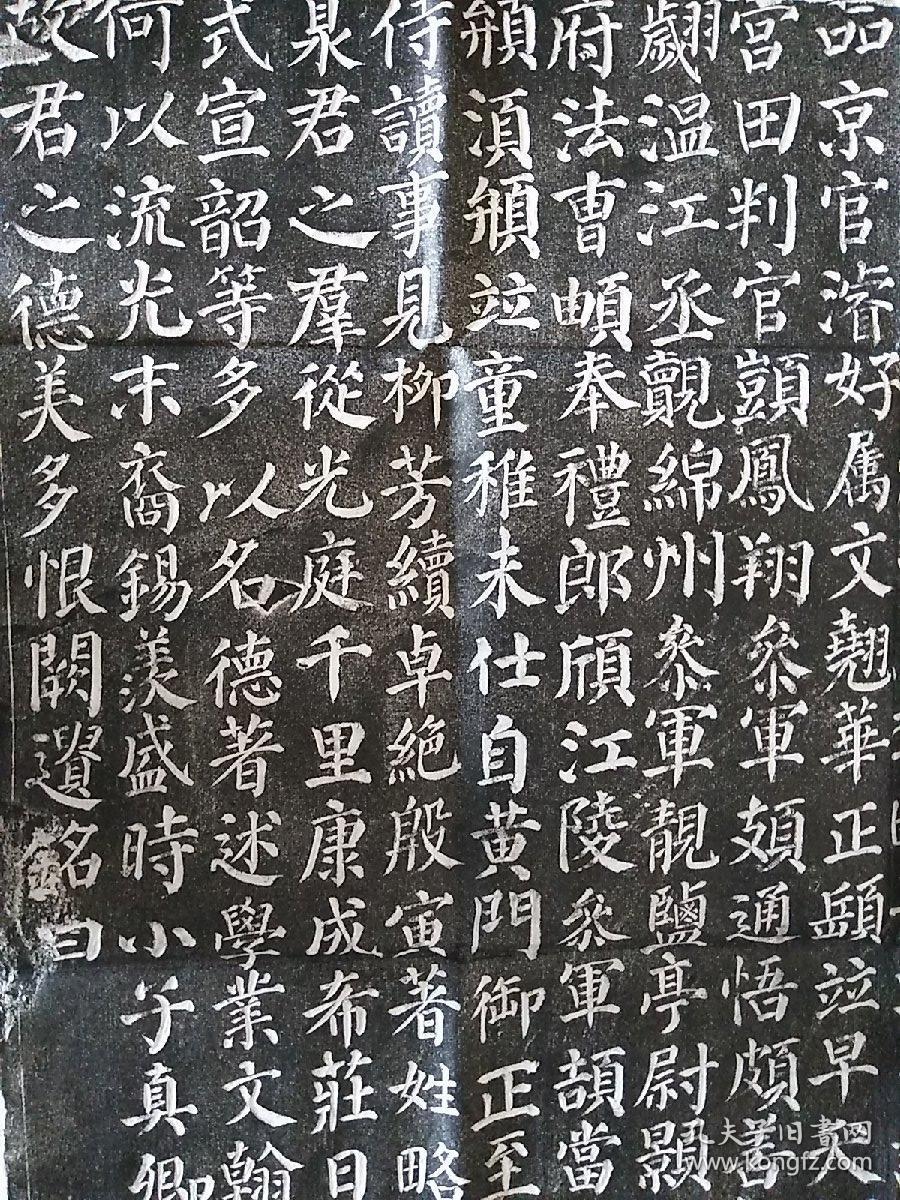 品京官濬好属文翹華正頣並早夭
營田判官顗鳳翔參軍頍通悟頗善
翽温江丞覿綿州參軍靚鹽亭尉顥
府法曹頔奉禮郎頎江陵參軍頡當
須頩並童稚未仕自黃門御正至
侍讀事見柳芳續卓絕殷寅著姓略
泉君之羣從光庭千里康成希莊日
式宣韶等多以名德著述學業文翰
何以流光末裔錫羨盛時小子真卿
故君之德美多恨闕遺銘曰
孔夫子旧書网
www.kongfz.com